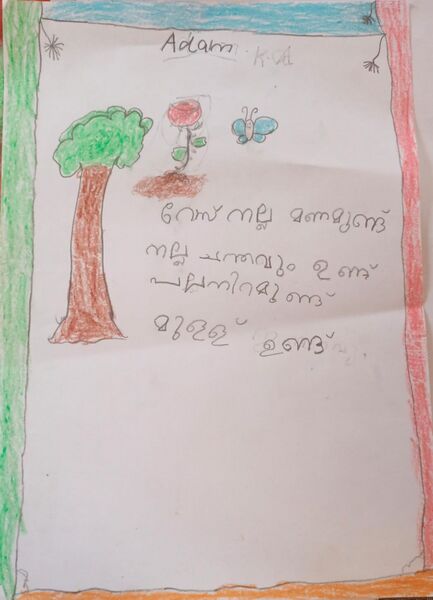 Adam K.A
റോസ് നല്ല മണമുണ്ട്
നല്ല ചന്തവും ഉണ്ട്
പലനിറമുണ്ട്
മുള്ള് ഉണ്ട്